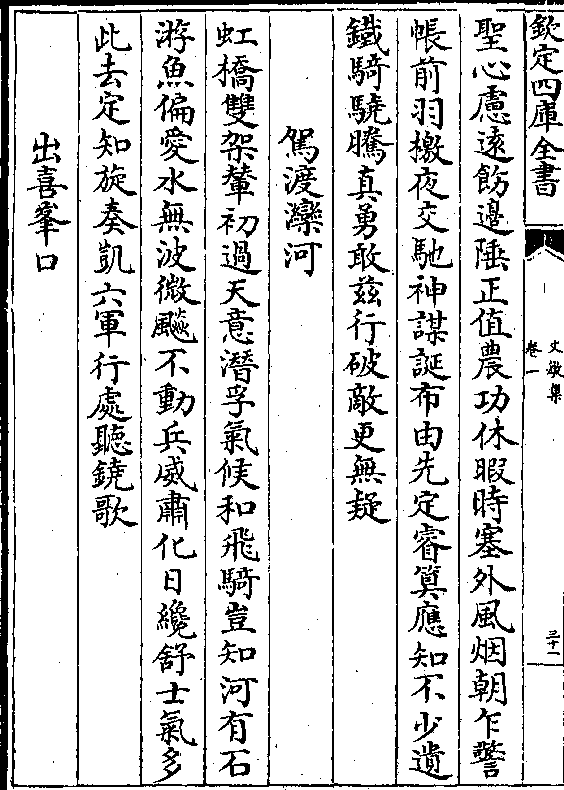 欽定四庫全書
文敏集
卷一
三十一
聖心慮遠飭邊陲正值農功休暇時塞外風烟朝乍警
帳前羽檄夜交馳神謀誕布由先定睿筭應知不少遺
鐵騎驍騰真勇敢兹行破敵更無疑
駕渡灤河
虹橋雙架輦初過天意潛孚氣候和飛騎豈知河有石
游魚偏愛水無波微飈不動兵威肅化日纔舒士氣多
此去定知旋奏凱六軍行處聽鐃歌
出喜峯口